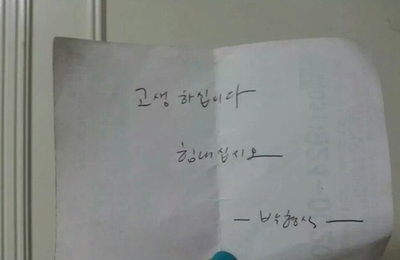 고생 하십니다
힘내십시요
- 박형식 -